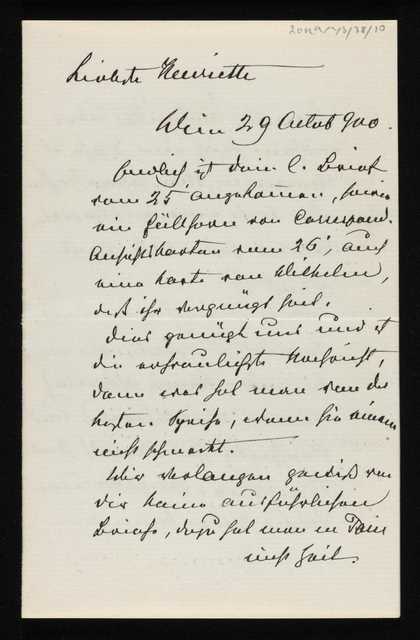 Liebste Henriette
Wien 29 Octob 900.
Endlich ist dein l. Brief
vom 25' angekommen, sowie
ein Füllhorn von Correspond.
Ansichtskarten vom 26', auch
eine Karte von Wilhelm,
daß ihr vergnügt seid.
Dies genügt uns und ist
die erfreulichste Nachricht,
denn was hat man von der
besten Speise, wenn sie einem
nicht schmeckt.
Wir verlangen gewiß von
dir keine ausführlichen
Briefe, dazu hat man in Paris
nicht Zeit.